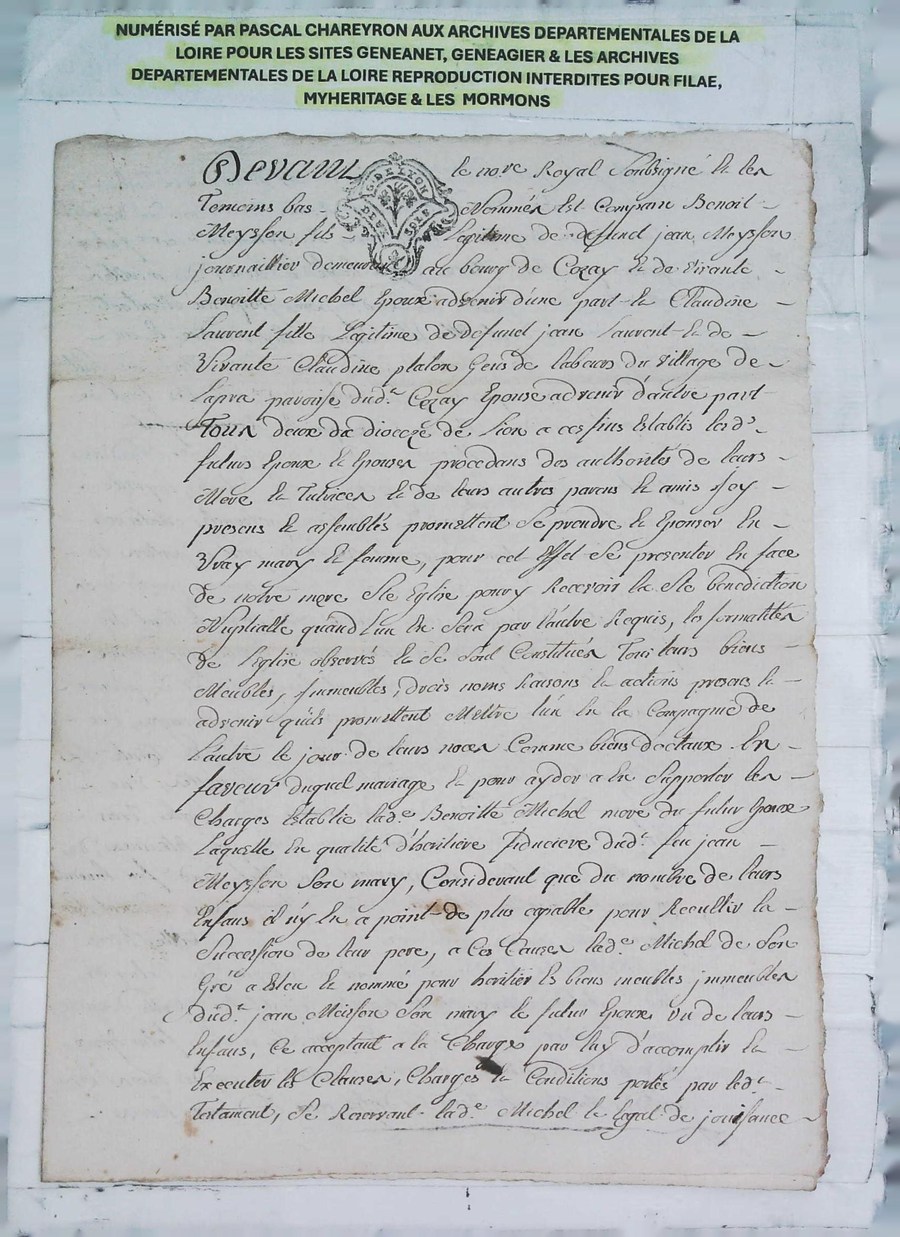 NUMÉRISÉ PAR PASCAL CHAREYRON AUX ARCHIVES DEPARTEMENTALES DE LA
LOIRE POUR LES SITES GENEANET, GENEAGIER & LES ARCHIVES
DEPARTEMENTALES DE LA LOIRE REPRODUCTION INTERDITES POUR FILAE,
MYHERITAGE & LES MORMONS
Devant le no.re Royal Soubsigné Et les
G. DE LYON
DEUX SOLS
Temoins bas - Nommés Est Comparu Benoit -
Meysson fils - Legitime de defunct jean Meysson
journaillier demeurant au bourg de Cezay Et de vivante -
Benoitte Michel Epoux advenir d'une part Et Claudine -
Laurent fille Legitime de defunct jean Laurent Et de -
Vivante Claudine platon Gens de labeurs du village de -
Lapra paroisse dud.t Cezay Epouse advenir d'autre part
Tous deux du dioceze de Lion a ces fins Establis lesd.s -
futurs Epoux Et Epouse procedans des authorités de leurs -
Mere Et Tutrices Et de leurs autres parens Et amis Icy -
presens Et assemblés promettent Se prendre Et Epouser En -
Vray mary Et femme, pour cet Effet Se presenter En face
de notre mere Ste Eglise pour y Recevoir la Ste benediction
Nuptialle quand L'un En Sera par l'autre Requis, les formalités
de l'Eglise observés Et Se Sont Constitués Tous leurs biens -
Meubles, Immeubles, droits noms Raisons Et actions presens Et -
advenir qu'ils promettent Mettre l'un En la Compagnie de
L'autre le jour de leurs noces Comme biens doctaux. En -
faveur duquel mariage Et pour ayder a En Supporter les -
Charges Establie lad.e Benoitte Michel mere du futur Epoux
Laquelle En qualité d'héritiere fiduciere dud.t feu jean -
Meysson Son mary, Considerant que du nombre de leurs
Enfans il n'y En a point de plus capable pour Recullir la -
Succession de leur pere, a Ces Causes lad.e Michel de Son
Gré a Eleu Et nommé pour héritier Es biens meubles immeubles
dud.t jean Meisson Son mary le futur Epoux un de leurs -
Enfans, Ce acceptant a la Charge par luy d'accomplir Et -
Executer les Clauses, Charges Et Conditions portés par led.t -
Testament, Se Reservant lad.e Michel le legat de jouissance -